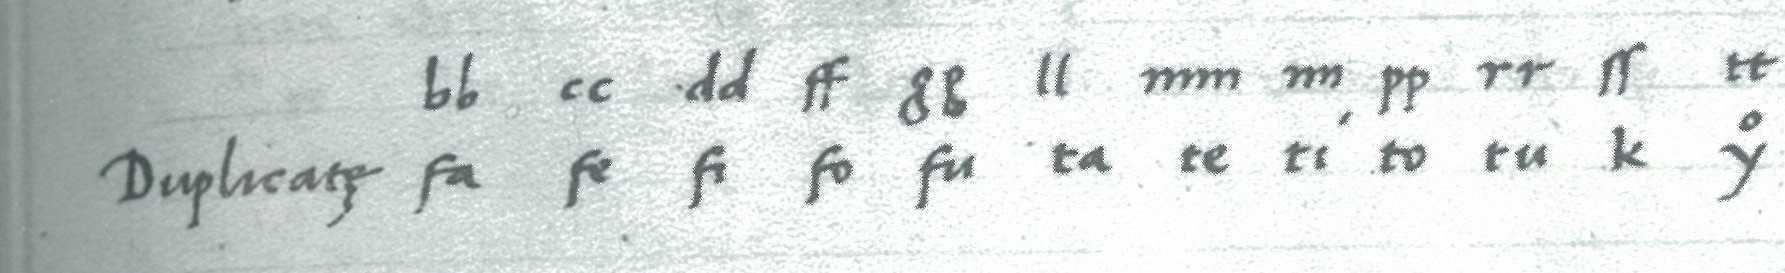 bb cc dd ff gg ll mm nn pp rr ſſ tt
Duplicatę fa fe fi fo fu ta te ti to tu k ẙ